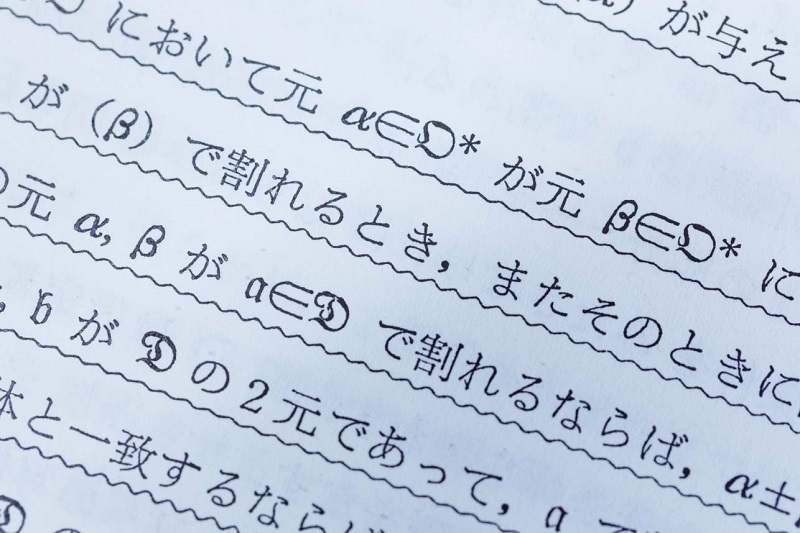 が与え
において元 α∈𝔒* が元 β∈𝔒* に
が (β) で割れるとき, またそのときに
の元 α, β が 𝔞∈𝔇 で割れるならば, α±
𝔟 が 𝔇 の2元であって, 𝔞
体と一致するならば